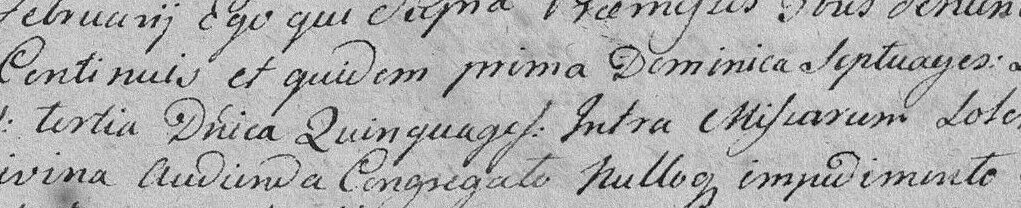 Februarij Ego qui Supra Praemissis 3bus denun
Continuis et quidem prima Dominica Septuages:
: tertia Dnica Quinquages: Intra Missarum Solem
ivina Audienda Congregato Nulloq impedimento